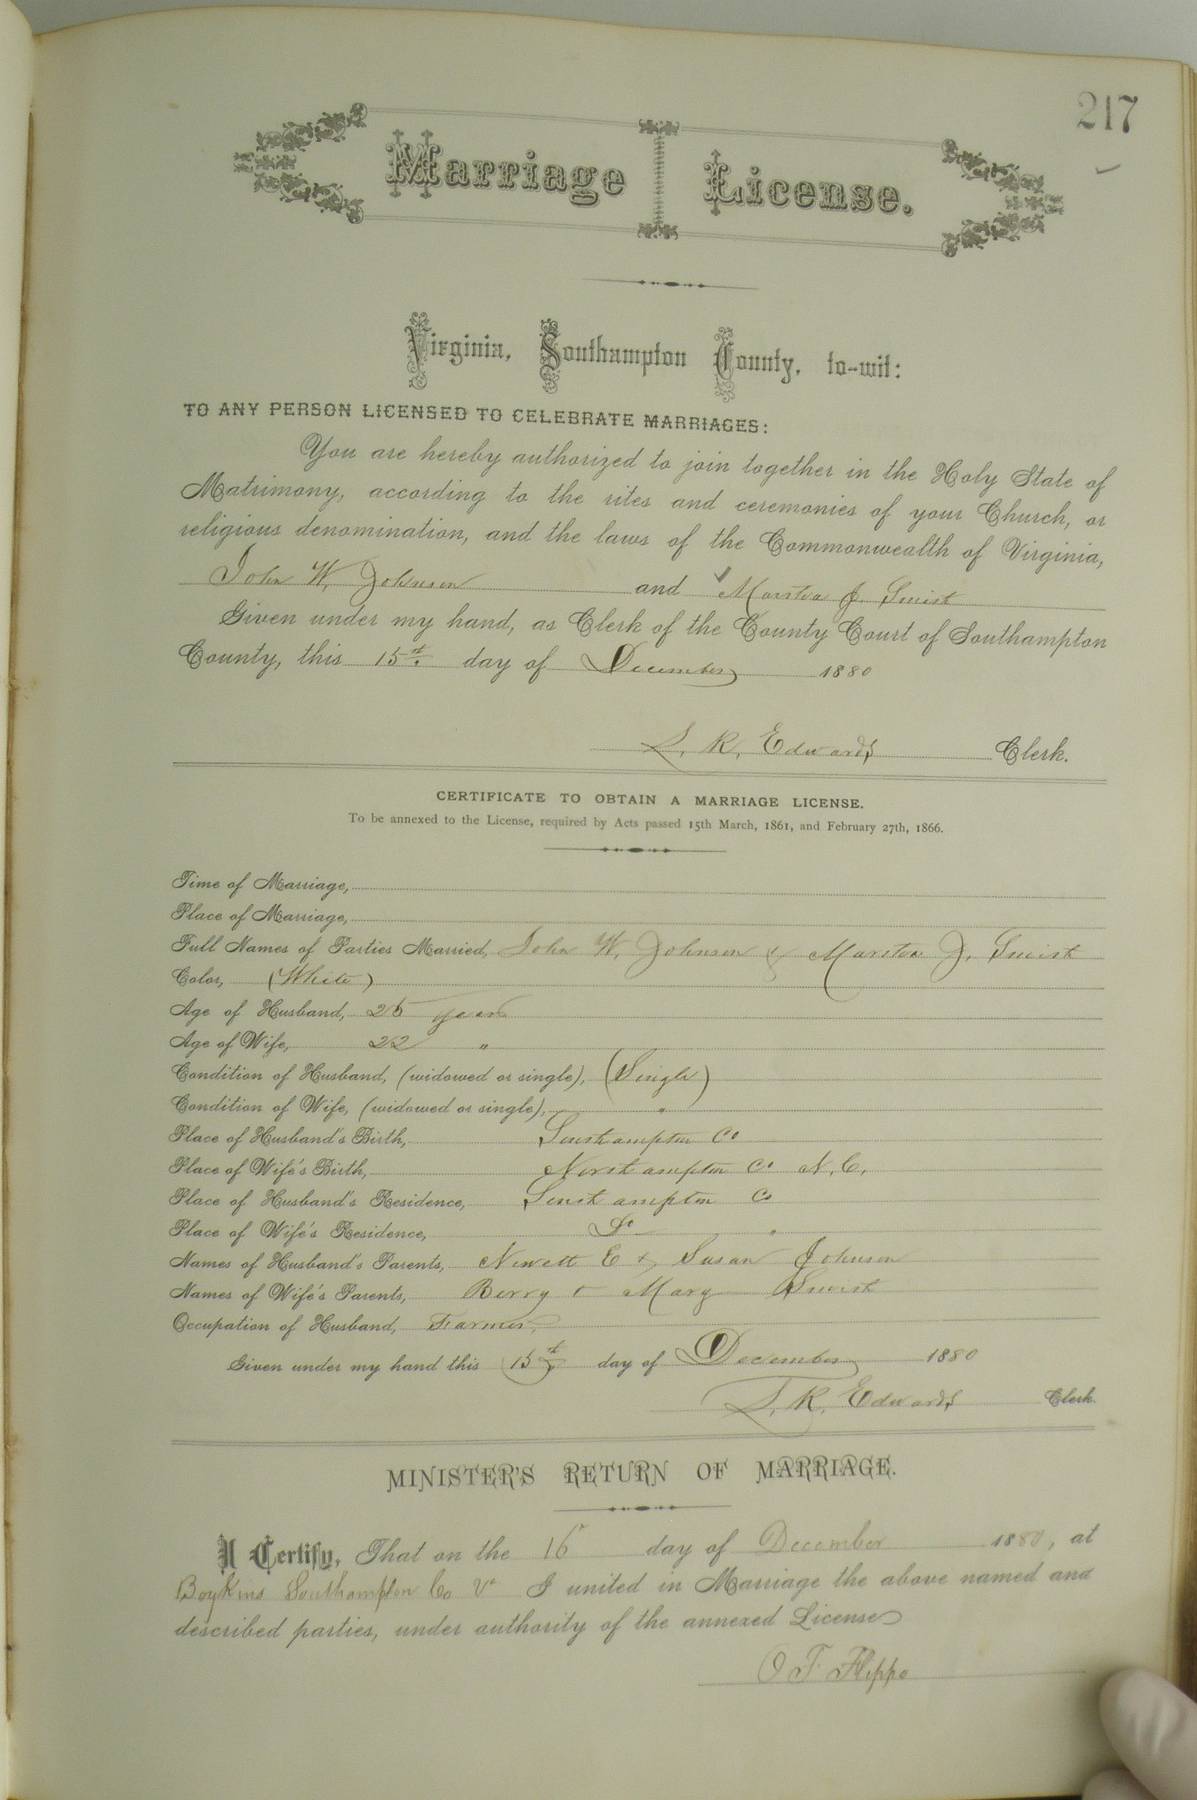 217
Marriage License.
Virginia, Southampton County, to-wit:
TO ANY PERSON LICENSED TO CELEBRATE MARRIAGES:
You are hereby authorized to join together in the Holy State of
Matrimony, according to the rites and ceremonies of your Church, or
religious denomination, and the laws of the Commonwealth of Virginia,
John W. Johnson and J.
Given under my hand, as Clerk of the County Court of Southampton
County, this 15th day of December 1880
L. R. Edwards Clerk.
CERTIFICATE TO OBTAIN A MARRIAGE LICENSE.
To be annexed to the License, required by Acts passed 15th March, 1861, and February 27th, 1866.
Time of Marriage,
Place of Marriage,
Full Names of Parties Married, John W. Johnson & J.
Color, (White)
Age of Husband, 25 years
Age of Wife, 22 "
Condition of Husband, (widowed or single), (Single)
Condition of Wife, (widowed or single), "
Place of Husband's Birth, Southampton Co
Place of Wife's Birth, Northampton Co N.C.
Place of Husband's Residence, Southampton Co
Place of Wife's Residence, Do "
Names of Husband's Parents, Newett E & Susan Johnson
Names of Wife's Parents, Berry & Mary
Occupation of Husband, Farmer,
Given under my hand this 15th day of December 1880
L. R. Edwards Clerk.
MINISTER'S RETURN OF MARRIAGE.
I Certify, That on the 16 day of December 1880, at
Boykins Southampton Co Va I united in Marriage the above named and
described parties, under authority of the annexed License
O F Flippo